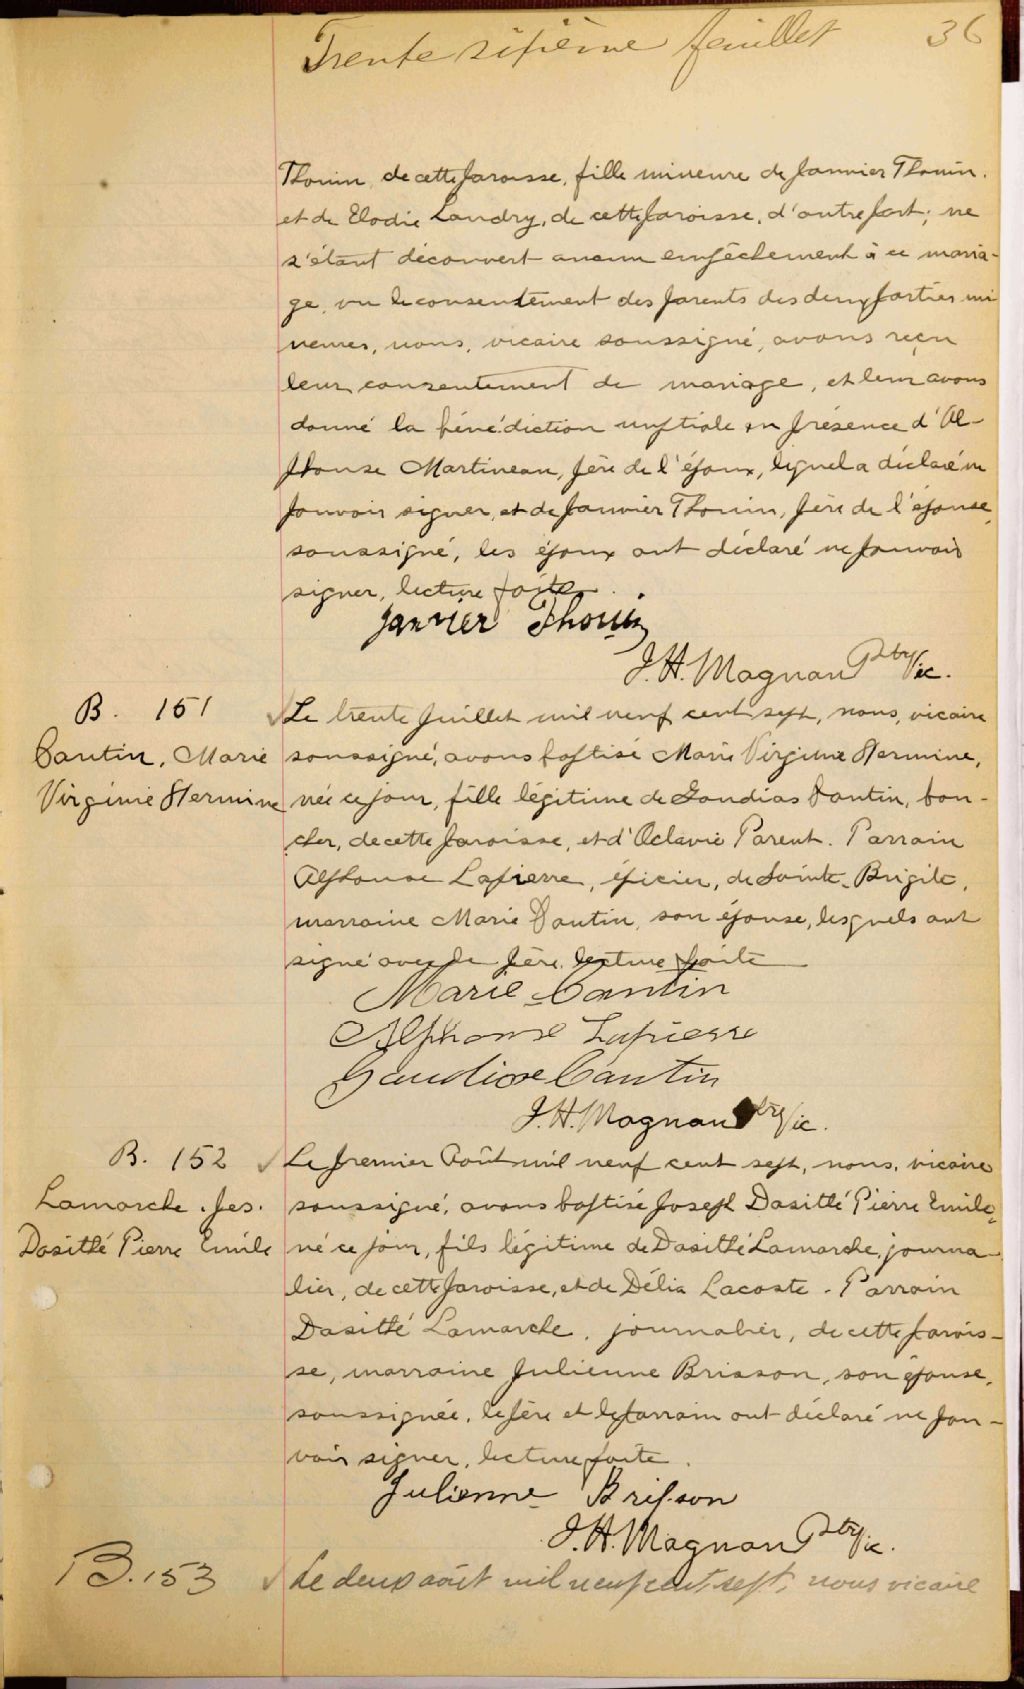 Trente sixième feuillet 36
Thouin, de cette paroisse, fille mineure de Janvier Thouin,
et de Elodie Landry, de cette paroisse, d'autre part; ne
s'étant découvert aucun empêchement à ce maria-
ge, vu le consentement des parents des deux parties mi
neures, nous, vicaire soussigné, avons reçu
leur consentement de mariage, et leur avons
donné la bénédiction nuptiale en présence d'Al-
phonse Martineau, père de l'époux, lequel a déclaré ne
pouvoir signer, et de Janvier Thouin, père de l'épouse,
soussigné, les époux ont déclaré ne pouvoir
signer, lecture faite.
Janvier Thouin
J. H. Magnan Ptre Vic.
B. 151
Cantin, Marie
Virginie Hermine
Le trente Juillet mil neuf cent sept, nous, vicaire
soussigné, avons baptisé Marie Virginie Hermine,
née ce jour, fille légitime de Gaudias Cantin, bou-
cher, de cette paroisse, et d'Octavie Parent. Parrain
Alphonse Lapierre, épicier, de Sainte-Brigite,
marraine Marie Cantin, son épouse, lesquels ont
signé avec le père, lecture faite
Marie Cantin
Alphonse Lapierre
Gaudiose Cantin
J. H. Magnan Ptre Vic.
B. 152
Lamarche, Jos.
Dosithé Pierre Emile
Le premier Août mil neuf cent sept, nous, vicaire
soussigné, avons baptisé Joseph Dosithé Pierre Emile,
né ce jour, fils légitime de Dosithé Lamarche, journa-
lier, de cette paroisse, et de Délia Lacoste. Parrain
Dosithé Lamarche, journalier, de cette parois-
se, marraine Julienne Brisson, son épouse,
soussignée, le père et le parrain ont déclaré ne pou-
voir signer, lecture faite.
Julienne Brisson
J. H. Magnan Ptre Vic.
B. 153
Le deux août mil neuf cent sept, nous vicaire